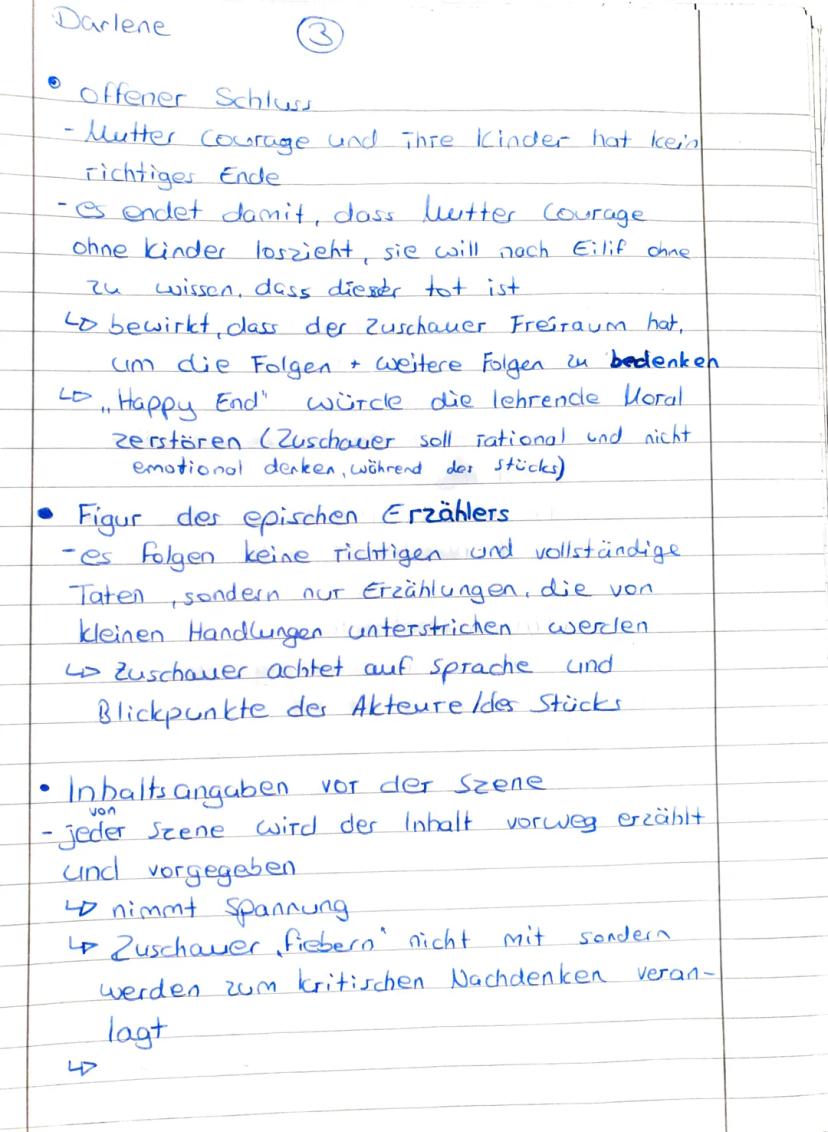 Darlene
3
• offener Schluss
- Mutter Courage und ihre Kinder hat kein
richtiges Ende
- es endet damit, dass Mutter Courage
ohne Kinder loszieht, sie will nach Eilif ohne
zu wissen, dass dieser tot ist
↳ bewirkt, dass der Zuschauer Freiraum hat,
um die Folgen + weitere Folgen zu bedenken
↳ „Happy End" würde die lehrende Moral
zerstören (Zuschauer soll rational und nicht
emotional denken, während des Stücks)
• Figur des epischen Erzählers
- es folgen keine richtigen und vollständige
Taten, sondern nur Erzählungen, die von
kleinen Handlungen unterstrichen werden
↳ Zuschauer achtet auf Sprache und
Blickpunkte der Akteure/des Stücks
• Inhaltsangaben vor der Szene
- von jeder Szene wird der Inhalt vorweg erzählt
und vorgegeben
↳ nimmt Spannung
↳ Zuschauer „fiebern" nicht mit sondern
werden zum kritischen Nachdenken veran-
lagt
↳